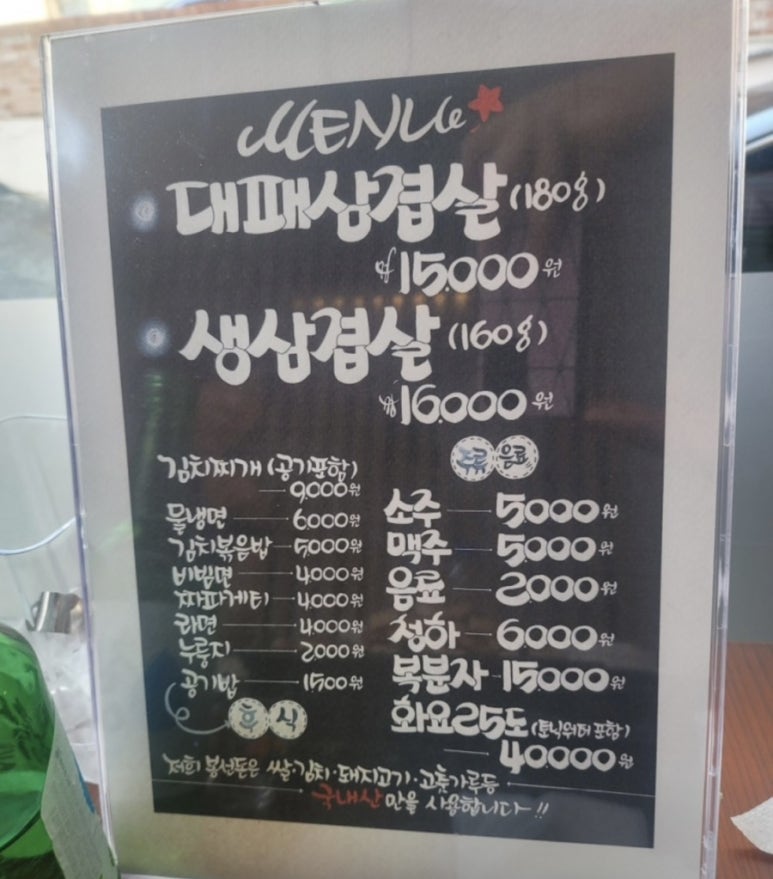 MENU
대패삼겹살 (180g)
₩15.000원
생삼겹살 (160g)
₩16.000원
김치찌개 (공기포함)
9,000원
물냉면 6,000원
김치볶음밥 5,000원
비빔면 4,000원
짜파게티 4,000원
라면 4,000원
누룽지 2,000원
공기밥 1500원
후식
주류 음료
소주 5,000원
맥주 5,000원
음료 2,000원
청하 6,000원
복분자 15,000원
화요25도 (토닉워터 포함)
40000원
저희 봉선돈은 쌀·김치·돼지고기·고춧가루등
국내산만을 사용합니다!!